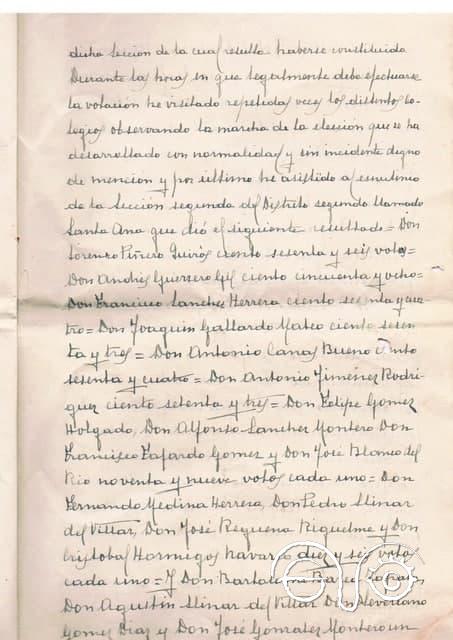 dicha Sección de la cual resulta haberse constituido
Durante las horas en que legalmente debe efectuarse
la votacion he visitado repetidas veces los distintos Co-
legios observando la marcha de la eleccion que se ha
desarrollado con normalidad y sin incidente digno
de mencion y por último he asistido al escrutinio
de la Sección segunda del Distrito segundo llamado
Santa Ana que dió el siguiente resultado = Don
Lorenzo Piñero Quirós ciento sesenta y seis votos =
Don Andrés Guerrero Gil ciento cincuenta y ocho =
Don Francisco Sanchez Herrera ciento sesenta y cua-
tro = Don Joaquin Gallardo Mateo ciento sesen
ta y tres = Don Antonio Canas Bueno ciento
sesenta y cuatro = Don Antonio Jiménez Rodri-
guez ciento setenta y tres = Don Felipe Gomez
Holgado, Don Alfonso Sanchez Montero Don
Francisco Fajardo Gomez y Don José Blanco del
Rio noventa y nueve votos cada uno = Don
Fernando Medina Herrera, Don Pedro
del Villar, Don José Requena Riquelme y Don
Cristobal Hormigos Navarro diez y seis votos
cada uno = Y Don Bartolomé
Don Agustin del Villar Don Severiano
Gomez Diaz y Don José Gonzalez Montero un